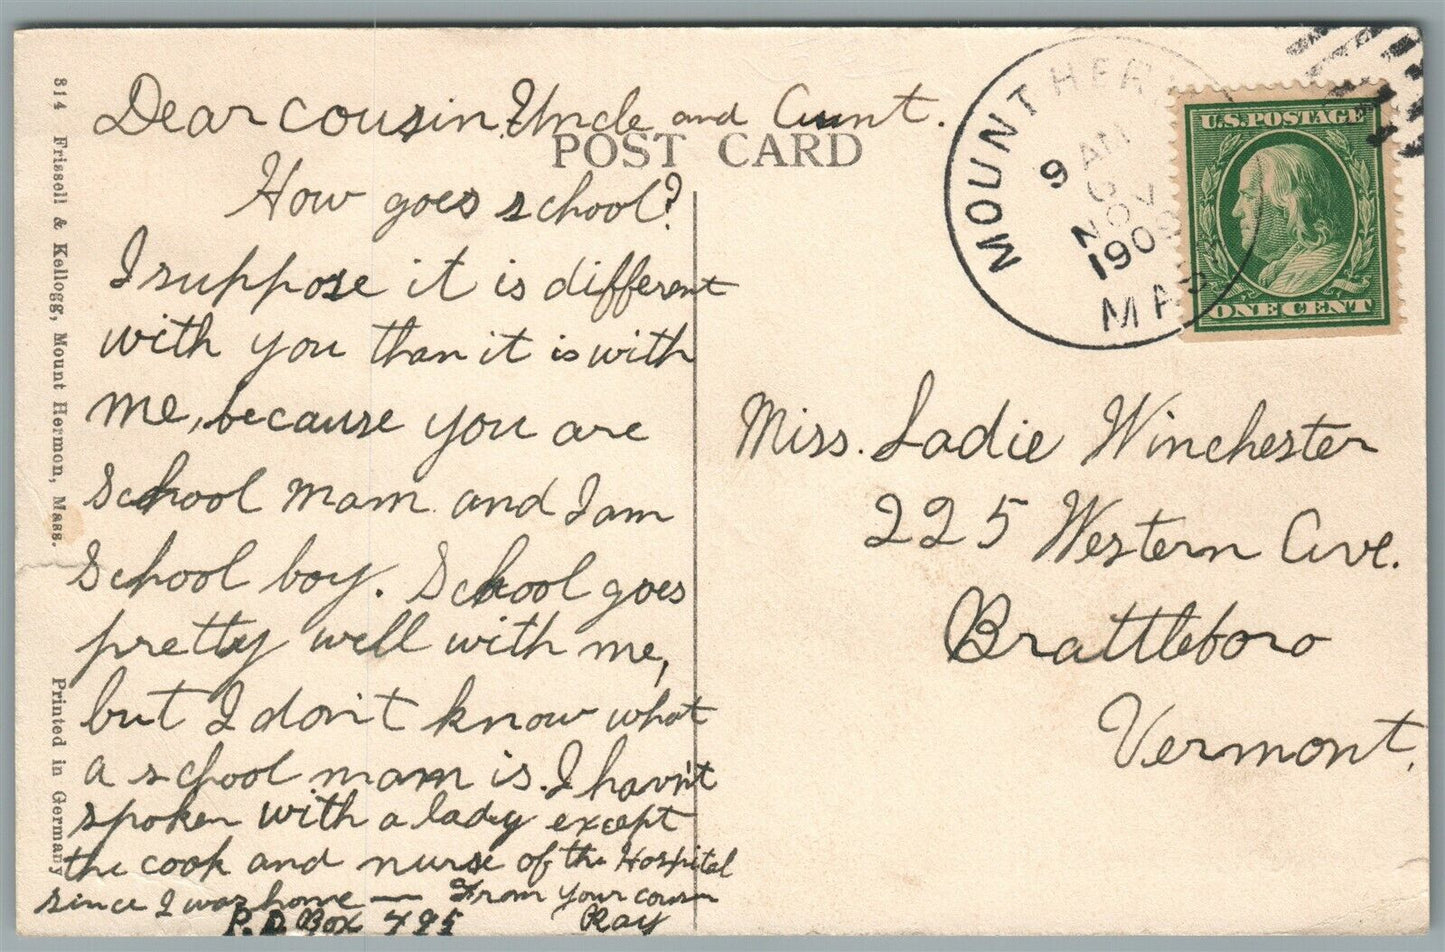 Dear cousin, Uncle and Aunt.
POST CARD
How goes school?
I suppose it is different
with you than it is with
me, because you are
School mam and I am
School boy. School goes
pretty well with me,
but I don't know what
a school mam is. I havn't
spoken with a lady except
the cook and nurse of the Hospital
since I was home — From your cousin
P.O. Box 495 Ray
814 Frissell & Kellogg, Mount Hermon, Mass. Printed in Germany
MOUNT HERM
9 AM
6
NOV
1909
MASS
U.S. POSTAGE
ONE CENT
Miss. Sadie Winchester
225 Western Ave.
Brattleboro
Vermont.